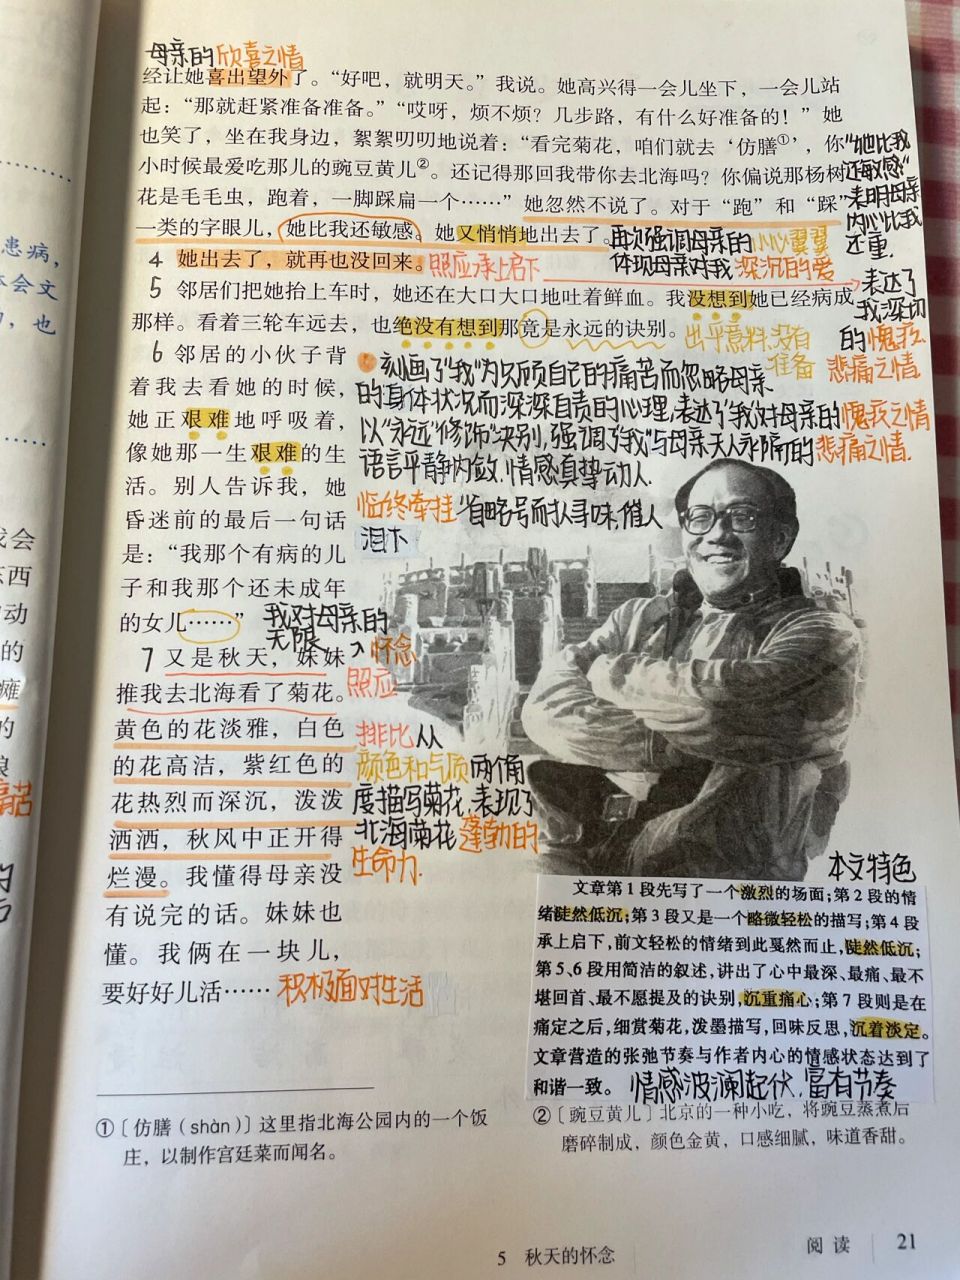 母亲的欣喜之情
经让她喜出望外了。“好吧，就明天。”我说。她高兴得一会儿坐下，一会儿站
起：“那就赶紧准备准备。”“哎呀，烦不烦？几步路，有什么好准备的！”她
也笑了，坐在我身边，絮絮叨叨地说着：“看完菊花，咱们就去‘仿膳①’，你
小时候最爱吃那儿的豌豆黄儿②。还记得那回我带你去北海吗？你偏说那杨树
花是毛毛虫，跑着，一脚踩扁一个……”她忽然不说了。对于“跑”和“踩”
一类的字眼儿，她比我还敏感。她又悄悄地出去了。
“她比我
还敏感”
表明母亲
内心比我
还重.
再次强调母亲的小心翼翼
体现母亲对我深沉的爱
4 她出去了，就再也没回来。照应承上启下
5 邻居们把她抬上车时，她还在大口大口地吐着鲜血。我没想到她已经病成
那样。看着三轮车远去，也绝没有想到那竟是永远的诀别。
出乎意料.没有
准备
表达了
我深切
的愧疚.
悲痛之情.
刻画了“我”为只顾自己的痛苦而忽略母亲
的身体状况而深深自责的心理,表达了“我”对母亲的愧疚之情
以“永远”修饰“诀别,强调了“我”与母亲天人永隔的悲痛之情.
语言平静内敛.情感真挚动人.
6 邻居的小伙子背
着我去看她的时候，
她正艰难地呼吸着，
像她那一生艰难的生
活。别人告诉我，她
昏迷前的最后一句话
是：“我那个有病的儿
子和我那个还未成年
的女儿……”
临终牵挂 省略号耐人寻味,催人
泪下
我对母亲的
无限 怀念
7 又是秋天，妹妹
推我去北海看了菊花。
黄色的花淡雅，白色
的花高洁，紫红色的
花热烈而深沉，泼泼
洒洒，秋风中正开得
烂漫。我懂得母亲没
有说完的话。妹妹也
懂。我俩在一块儿，
要好好儿活……
照应
排比从
颜色和气质两个角
度描写菊花.表现了
北海菊花蓬勃的
生命力.
积极面对生活
本文特色
文章第1段先写了一个激烈的场面；第2段的情
绪陡然低沉；第3段又是一个略微轻松的描写；第4段
承上启下，前文轻松的情绪到此戛然而止，陡然低沉；
第5、6段用简洁的叙述，讲出了心中最深、最痛、最不
堪回首、最不愿提及的诀别，沉重痛心；第7段则是在
痛定之后，细赏菊花，泼墨描写，回味反思，沉着淡定。
文章营造的张弛节奏与作者内心的情感状态达到了
和谐一致。 情感波澜起伏.富有节奏
①〔仿膳（shàn）〕这里指北海公园内的一个饭
庄，以制作宫廷菜而闻名。
②〔豌豆黄儿〕北京的一种小吃，将豌豆蒸煮后
磨碎制成，颜色金黄，口感细腻，味道香甜。
5 秋天的怀念
阅读 21
患病，
体会文
，也
我会
东西
动
的
瘫
的